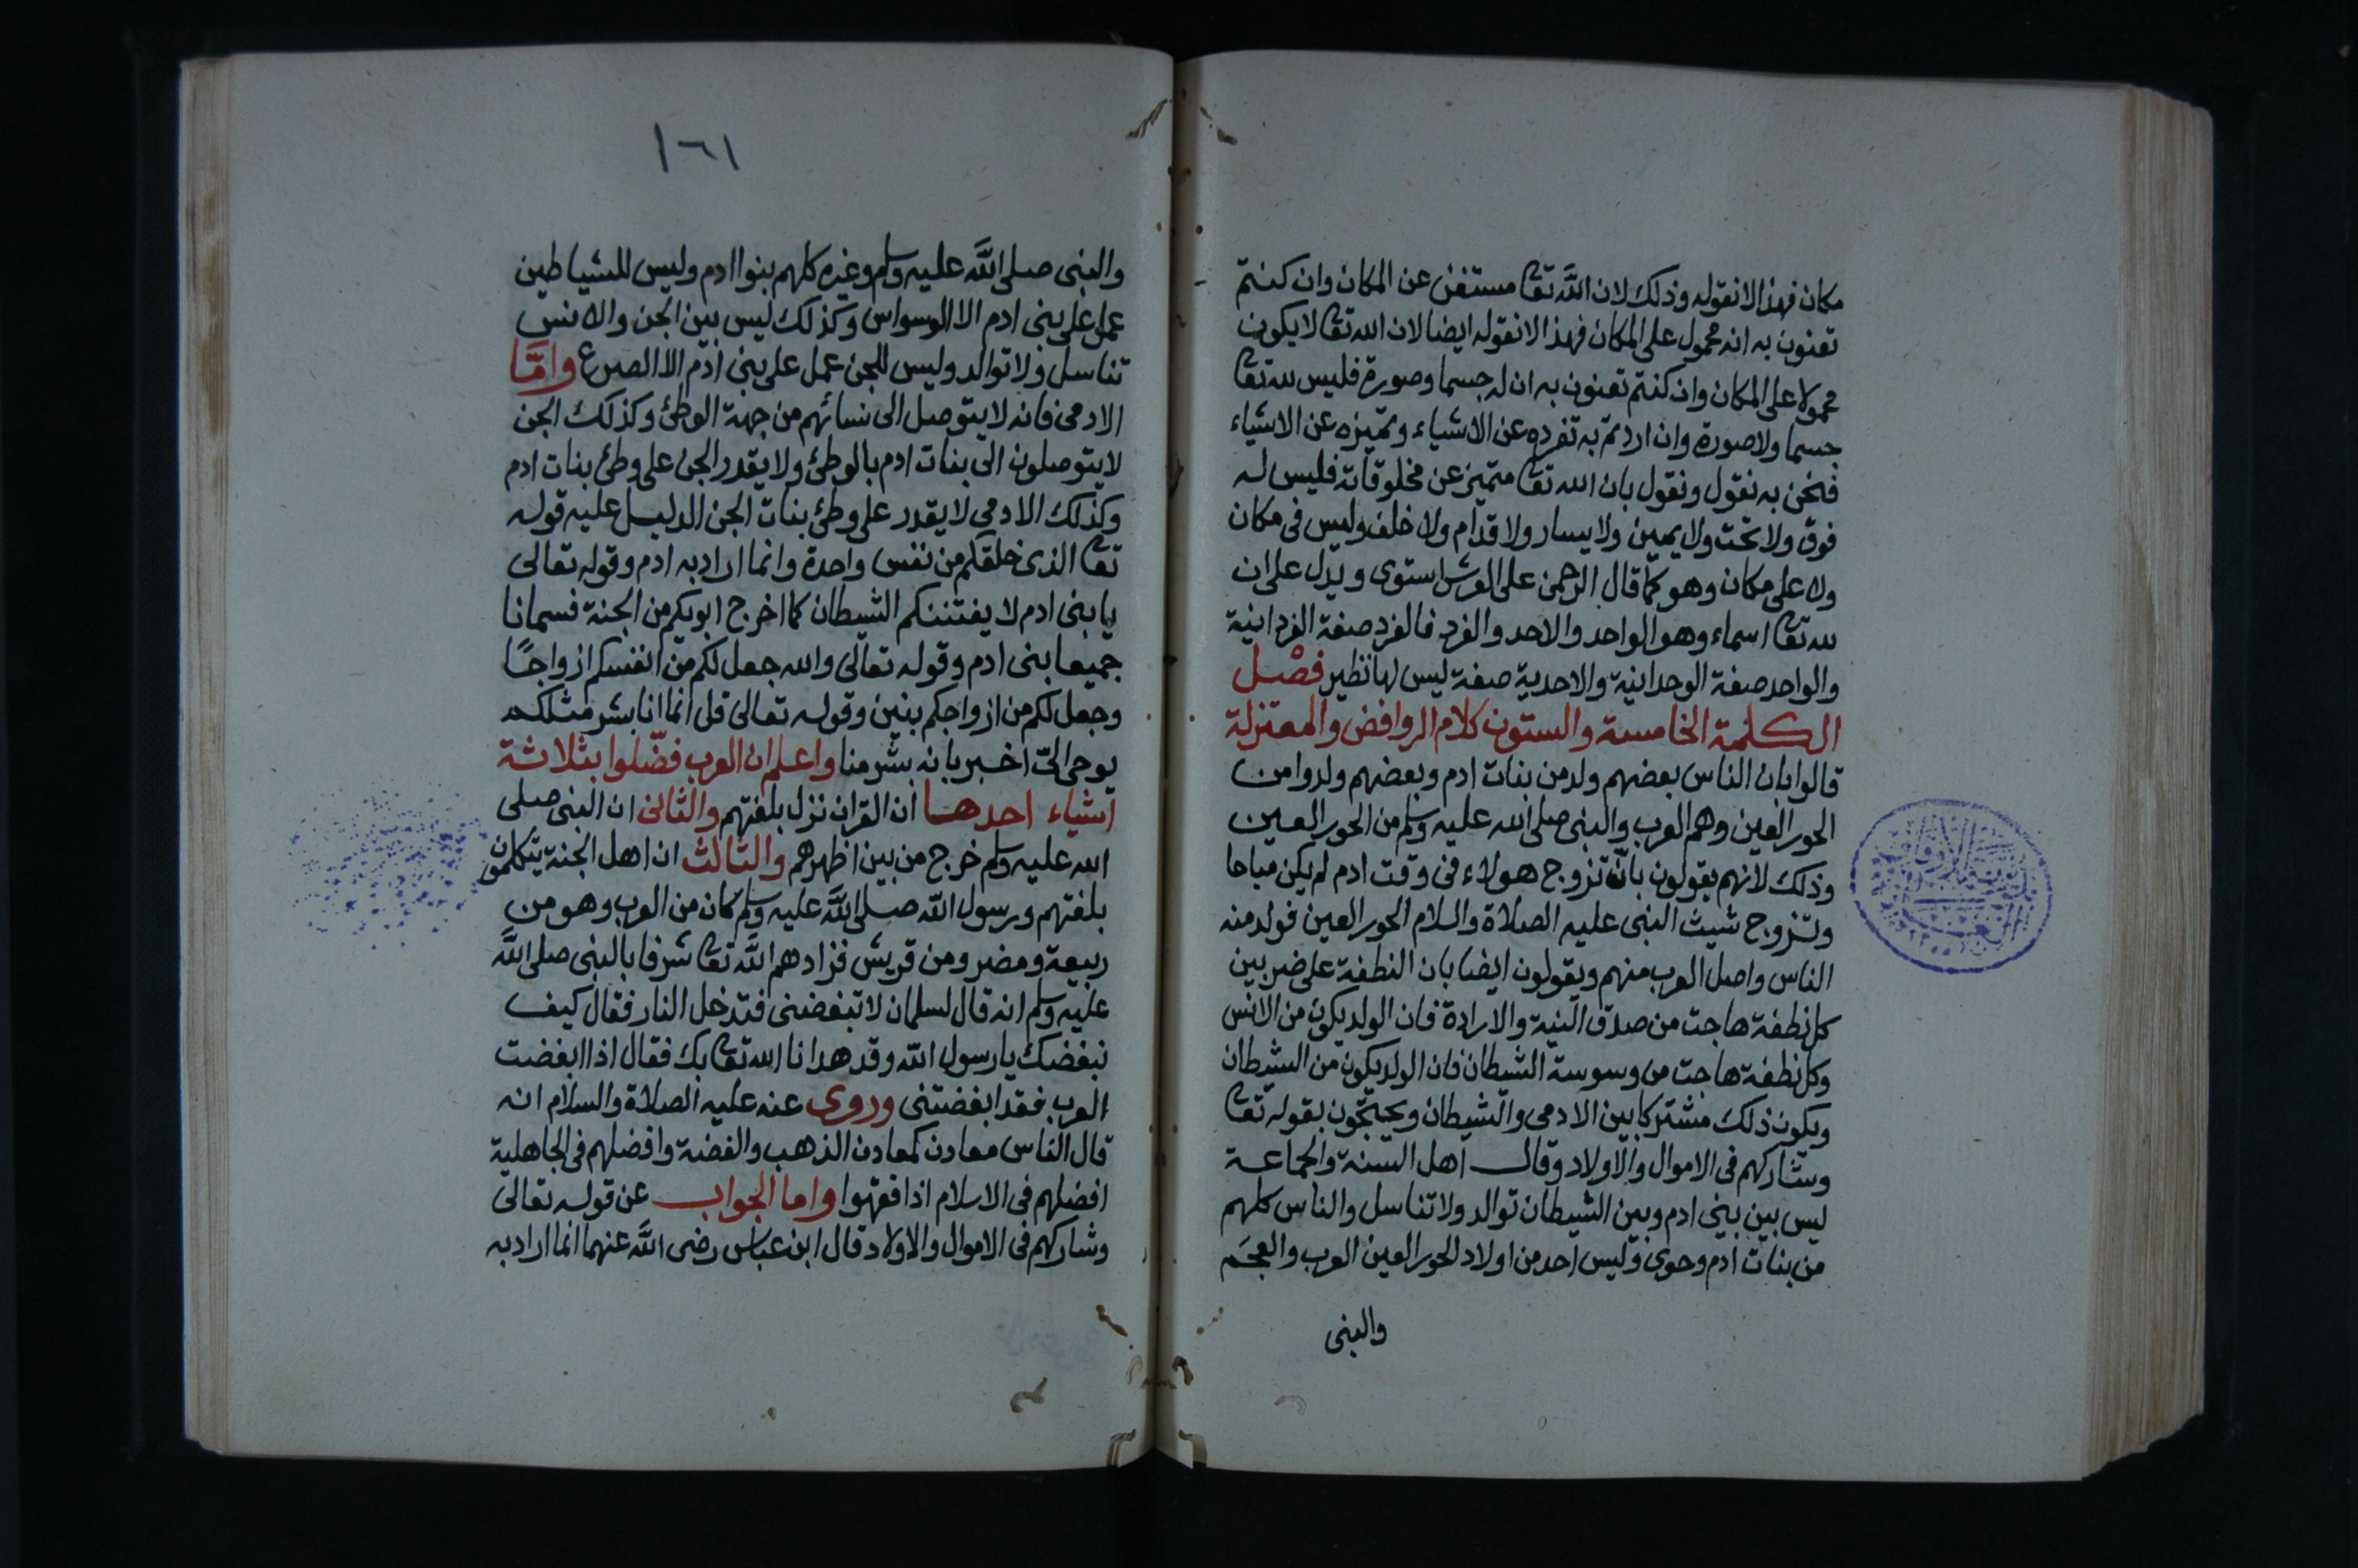 مكان فهذا لا نقوله وذلك لان الله تعا مستغن عن المكان وان كنتم
تعنون به انه محمول على المكان فهذا لا نقوله ايضا لان الله تعا لا يكون
محمولا على المكان وان كنتم تعنون به ان له جسما وصورة فليس لله تعا
جسما ولا صورة وان اردتم به تفرده عن الاشياء وتميزه عن الاشياء
فنحن به نقول ونقول بان الله تعا متميز عن مخلوقاته فليس له
فوق ولا تحت ولا يمين ولا يسار ولا قدام ولا خلف وليس فى مكان
ولا على مكان وهو كما قال الرحمن على العرش استوى ويدل على ان
لله تعا اسماء وهو الواحد والاحد والفرد فالفرد صفة الفردانية
والواحد صفة الوحدانية والاحدية صفة ليس لها نظير فصْل
الكلمة الخامسة والستون كلام الروافض والمعتزلة
قالوا بان الناس بعضهم ولد من بنات ادم وبعضهم ولدوا من
الحور العين وهم العرب والنبى صلى الله عليه وسلم من الحور العين
وذلك لانهم يقولون بانّ تزوج هولاء فى وقت ادم لم يكن مباحا
وتزوج شيث النبى عليه الصلاة والسلام الحور العين فولد منه
الناس واصل العرب منهم ويقولون ايضا بان النطفة على ضربين
كل نطفة هاجت من صدق النية والارادة فان الولد يكون من الانس
وكل نطفة هاجت من وسوسة الشيطان فان الولد يكون من الشيطان
ويكون ذلك مشتركا بين الادمى والشيطان ويحتجون بقوله تعا
وشاركهم فى الاموال والاولاد وقال اهل السنة والجماعة
ليس بين بنى ادم وبين الشيطان توالد ولا تناسل والناس كلهم
من بنات ادم وحوى وليس احد من اولاد الحور العين العرب والعجم
والنبى
١٦١
والنبى صلى الله عليه وسلم وغيره كلهم بنوا ادم وليس للشياطين
عمل على بنى ادم الا الوسواس وكذلك ليس بين الجن والانس
تناسل ولا توالد وليس للجن عمل على بنى ادم الا الصرع وامّا
الادمى فانه لا يتوصل الى نسائهم من جهة الوطئ وكذلك الجن
لا يتوصلون الى بنات ادم بالوطئ ولا يقدر الجن على وطئ بنات ادم
وكذلك الادمى لا يقدر على وطئ بنات الجن الدليل عليه قوله
تعا الذى خلقكم من نفس واحدة وانما اراد به ادم وقوله تعالى
يا بنى ادم لا يفتننكم الشيطان كما اخرج ابويكم من الجنة فسمانا
جميعا بنى ادم وقوله تعالى والله جعل لكم من انفسكم ازواجًا
وجعل لكم من ازواجكم بنين وقوله تعالى قل انما انا بشر مثلكم
يوحى الىّ اخبر بانه بشر منا واعلم ان العرب فضّلوا بثلاثة
اشياء احدها ان القران نزل بلغتهم والثانى ان النبى صلى
الله عليه وسلم خرج من بين اظهرهم والثالث ان اهل الجنة يتكلمون
بلغتهم ورسول الله صلى الله عليه وسلم كان من العرب وهو من
ربيعة ومضر ومن قريش فزادهم الله تعا شرفا بالنبى صلى الله
عليه وسلم انه قال لسلمان لا تبغضنى فتدخل النار فقال كيف
نبغضك يا رسول الله وقد هدانا الله تعا بك فقال اذا ابغضت
العرب فقد ابغضتنى وروى عنه عليه الصلاة والسلام انه
قال الناس معادن كمعادن الذهب والفضة وافضلهم فى الجاهلية
افضلهم فى الاسلام اذا فقهوا واما الجواب عن قوله تعالى
وشاركهم فى الاموال والاولاد قال ابن عباس رضى الله عنهما انما اراد به